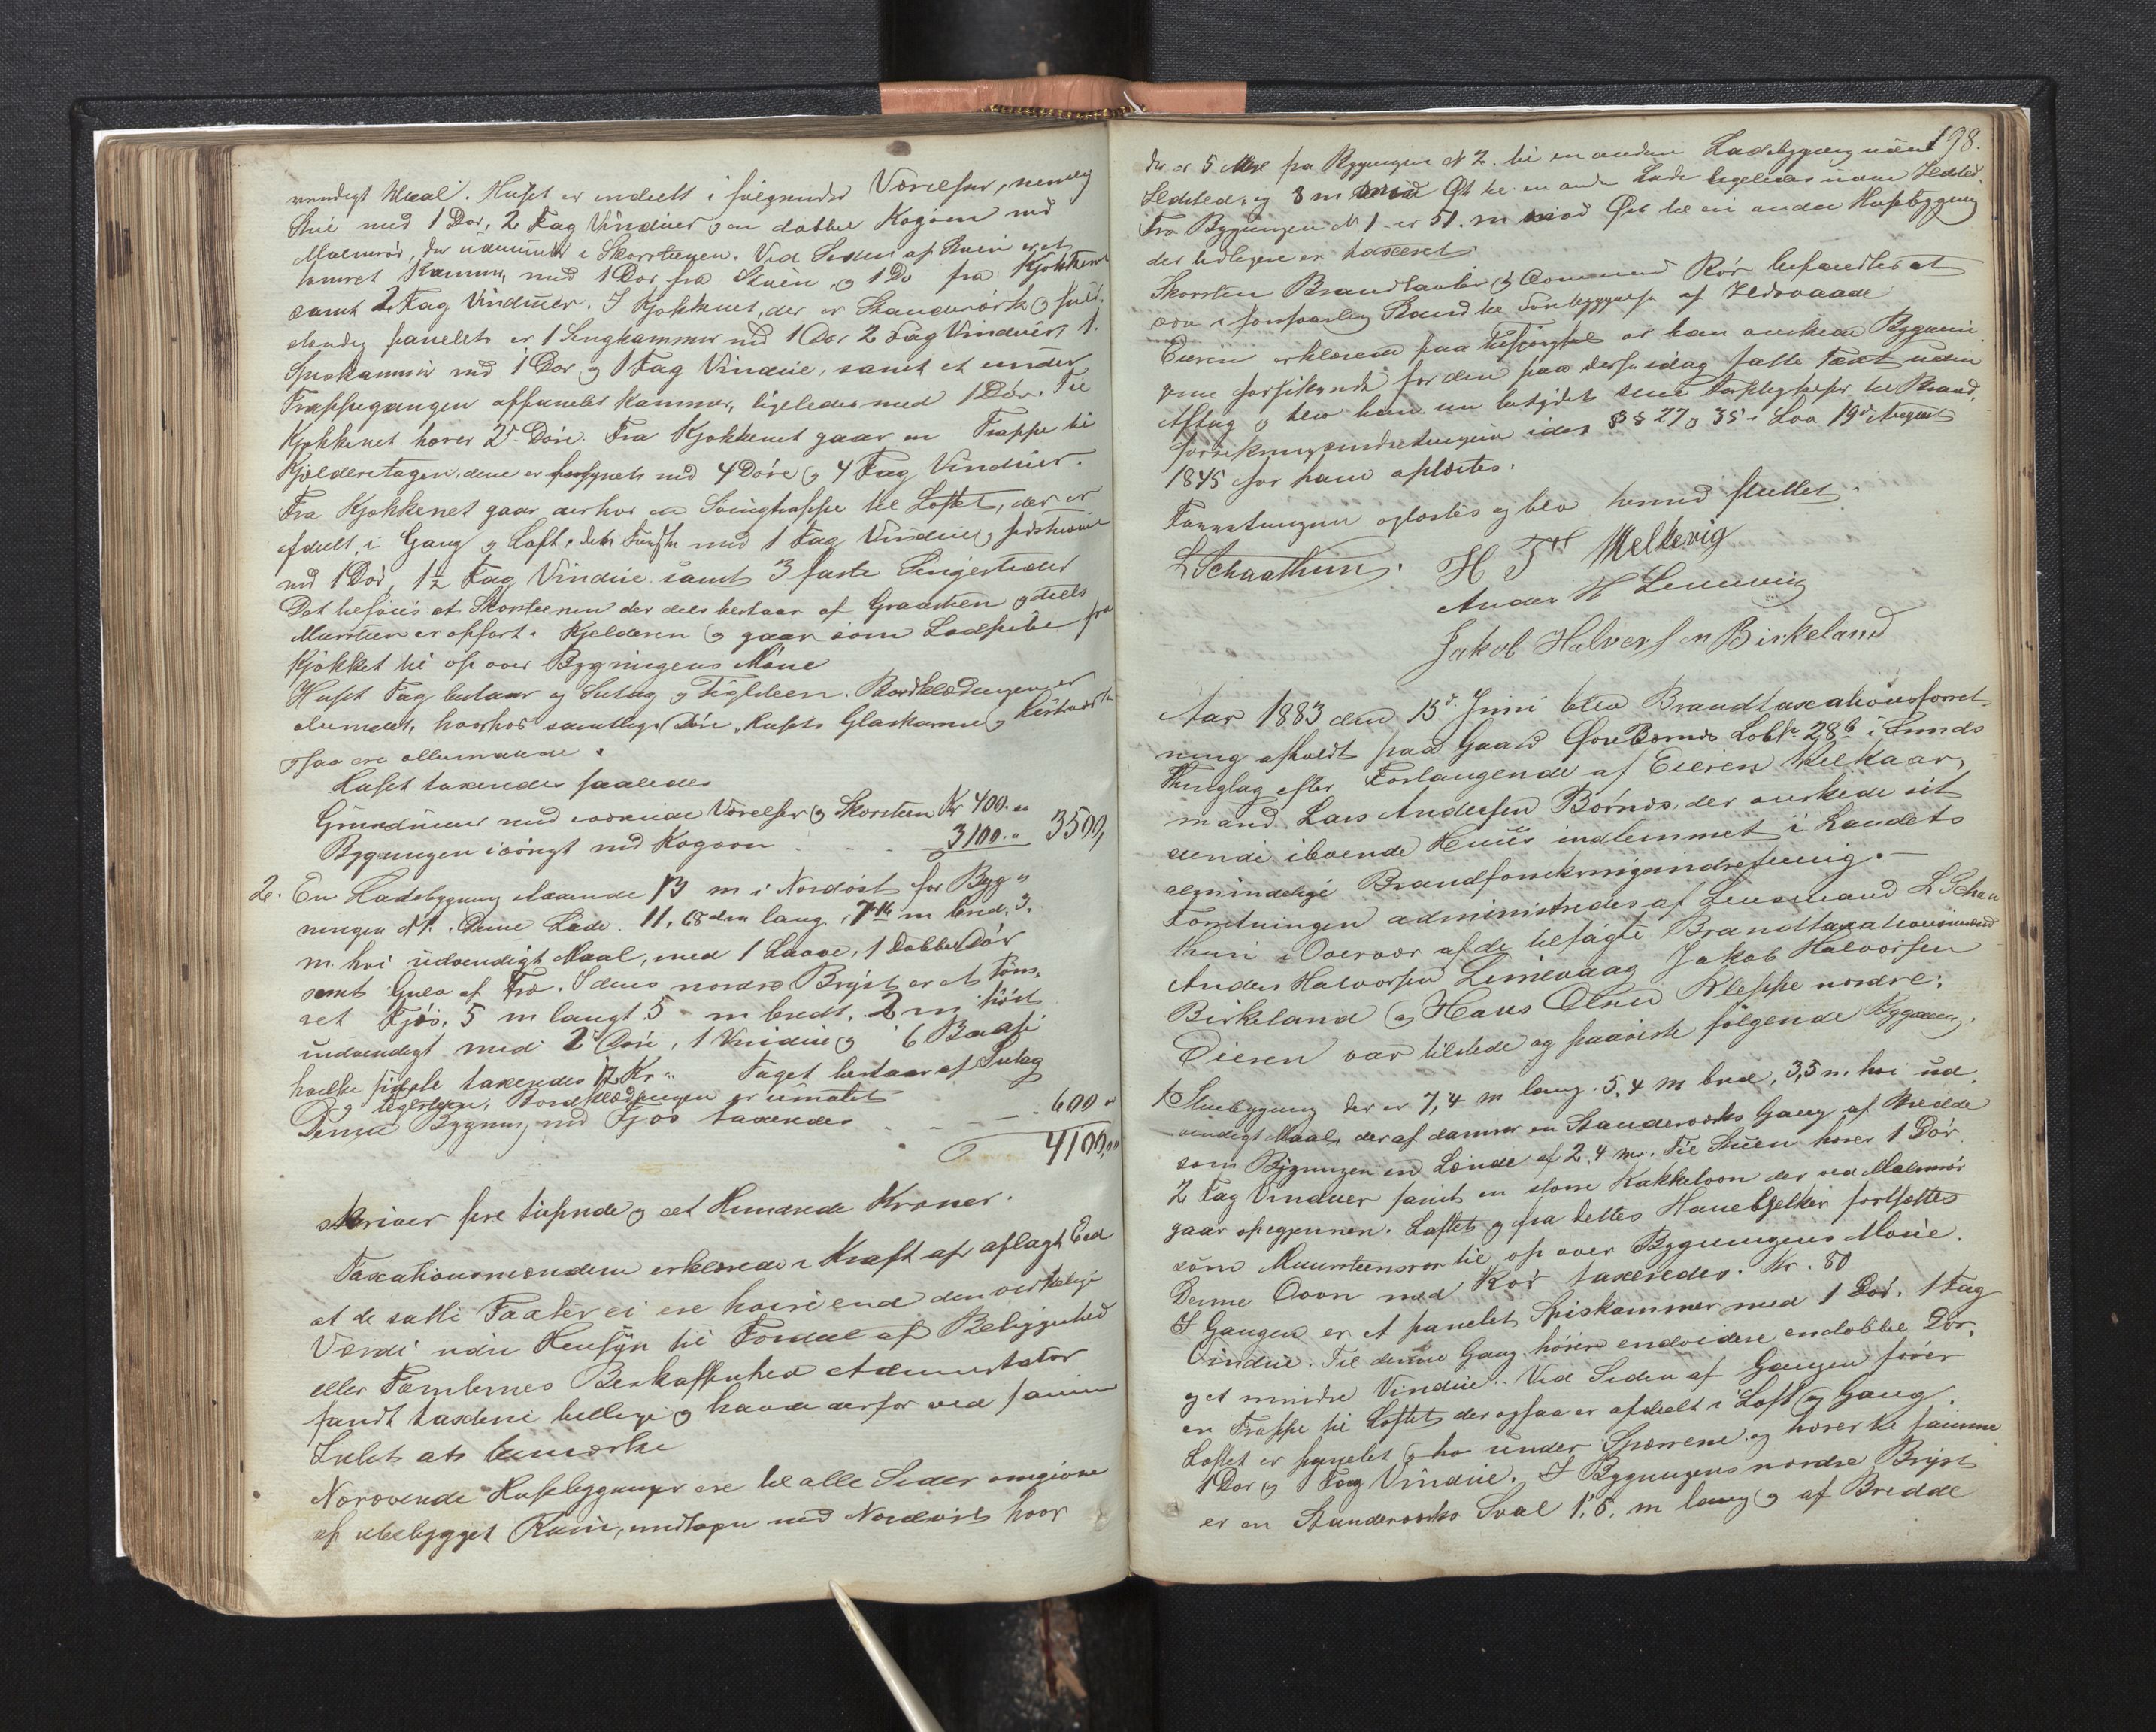 vendigt Maal. Huset er inddelt i følgende Værelser, nemlig
Stue med 1 Dør, 2 Fag Vinduer og en dobbel Kogoven med
Malmrør, der udmunder i Skorstenen. Ved Siden af Stuen er et
tømret Kammer, med 1 Dør fra Stuen, og 1 Do fra Kjøkkenet
samt 2 Fag Vinduer. I Kjøkkenet, der er Standerværk og fuld-
stændig panelet er 1 Sengkammer med 1 Dør 2 Fag Vinduer, 1.
Spiskammer med 1 Dør og 1 Fag Vindue, samt et under
Trappegangen afpanelet Kammer, ligeledes med 1 Dør. Til
Kjøkkenet hører 2de Døre. Fra Kjøkkenet gaar en Trappe til
Kjelderetagen, denne er forsynet med 4 Døre og 4 Fag Vinduer.
Fra Kjøkkenet gaar derhos en Svingtrappe til Loftet, der er
afdelt i Gang og Loft, det Første med 1 Fag Vindue, sidstnævnte
med 1 Dør, 1½ Fag Vindue samt 3 faste Sengesteder
Det tilføies at Skorstenen der dels bestaar af Graasten og dels
Mursten er opført i Kjelderen og gaar som Lodpibe fra
Kjøkket til op over Bygningens Møne
Huset Tag bestaar af Sutag og Teglsteen. Bordklædningen er
oliemalet, hvorhos samtlige Døre, Husets Glaskarme og
ogsaa ere oliemalede.
Huset taxeredes saaledes
Grundmur med værende Værelser og Skorsten Kr 400.00
Bygningen iøvrigt med Kogoven . . . 3100.00 3500,
2. En Ladebygning staaende 13 m i Nordøst for Byg-
ningen N 1. Denne Lade 11,68 dm lang, 7,16 m bred, 3,
m. høi udvendigt Maal, med 1 Laave, 1 Dobbel Dør
samt Gulv af Træ. I dens nordre Bryst er et tøm-
ret Fjøs, 5 m langt 5 m bredt, 2 m høit
indvendigt med 2 Døre, 1 Vindue og 6 Baase
hvilke sidste taxeredes 12 Kr. Taget bestaar af Sutag
og Teglsteen, Bordklædningen er umalet
Denne Bygning med Fjøs taxeredes . . . 600 "
4100,00
skriver fire tusinde og et Hundrede Kroner.
Taxationsmændene erklærede i Kraft af aflagt Eed
at de satte Taxter ei ere høiere end den virkelige
Værdi uden Hensyn til Fordeel af Beliggenhed
eller Tomternes Beskaffenhed Administrator
fandt Taxterne billige og havde derfor ved samme
Intet at bemærke
Nærværende Husebygninger ere til alle Sider omgivne
af ubebygget Rum, undtagen mod Nordvest hvor
198.
der er 5 Mtr fra Bygningen N 2 til en anden Ladebygning uden
Ildsted, og 3 m mod Øst til en anden Lade ligeledes uden Ildsted.
Fra Bygningen N 1 er 51. m mod Øst til en anden Husebygning
der tidligere er taxeret.
Skorsten Brandtavler og Ovnene med Rør befandtes at
være i forsvarlig Stand til Forebyggelse af Ildsvaade
Eieren erklærede paa Tilspørgsel at han ønskede Bygnin-
gerne forsikrede for den paa disse idag satte Taxt uden
Afslag og blev han nu betydet sine Forpligtelser til Brand-
forsikringsindretningen idet §§ 27 og 35 i Lov 19de August
1845 for ham oplæstes.
Forretningen oplæstes og blev hermed sluttet.
L Schaathun. H T H Mellevig
Anders H Linnevig
Jakob Halversen Birkeland
Aar 1883 den 15de Juni blev Brandtaxationsforret-
ning afholdt paa Gaard Øvre Bømnes LobNr 28b i Sunds
Thinglag efter Forlangende af Eieren Vilkaar-
mand Lars Andersen Børnes, der ønskede sit
iboende Huus indlemmet i Landets
almindelige Brandforsikringsindretning.
Forretningen administredes af Lensmand L Schaa-
thun i Overvær af de tilsagte Brandtaxationsmænd
Anders Halvorsen Linnevaag Jakob Halvorsen
Birkeland og Hans Olsen Kleppe nordre.
Eieren var tilstede og paaviste følgende Bygning.
1. Stuebygning der er 7,4 m lang. 5,4 m bred, 3,5 m. høi ud-
vendigt Maal, der af danner en Standerværks Gang af Bredde
som Bygningen en Længde af 2,4 m. Til Stuen hører 1 Dør
2 Fag Vinduer samt en større Kakkelovn der ved Malmrør
gaar opigjennem Loftet og fra dettes Hanebjelker fortsættes
som Muurstensrør til op over Bygningens Møne.
Denne Ovn med Rør taxeredes Kr. 80
I Gangen er et panelet Spiskammer med 1 Dør, 1 Fag
Vindue. Til denne Gang hører endvidere en dobbel Dør,
og et mindre Vindue. Ved Siden af Gangen fører
en Trappe til Loftet der ogsaa er afdeelt i Loft og Gang.
Loftet er panelet og ho under Sperrene, og hører til samme
1 Dør og Fag Vindue. I Bygningens nordre Bryst
er en Standerværks Sval 1,5. m lang og af Bredde